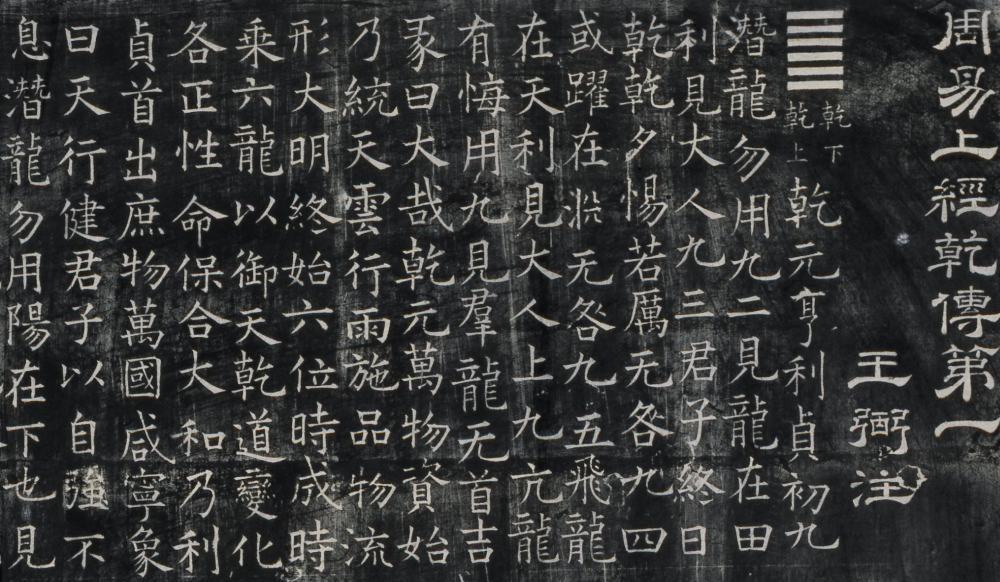 周易上經乾傳第一
王弼注
乾下
乾上
乾元亨利貞初九
潛龍勿用九二見龍在田
利見大人九三君子終日
乾乾夕惕若厲无咎九四
或躍在淵无咎九五飛龍
在天利見大人上九亢龍
有悔用九見羣龍无首吉
彖曰大哉乾元萬物資始
乃統天雲行雨施品物流
形大明終始六位時成時
乘六龍以御天乾道變化
各正性命保合大和乃利
貞首出庶物萬國咸寧象
曰天行健君子以自強不
息潛龍勿用陽在下也見